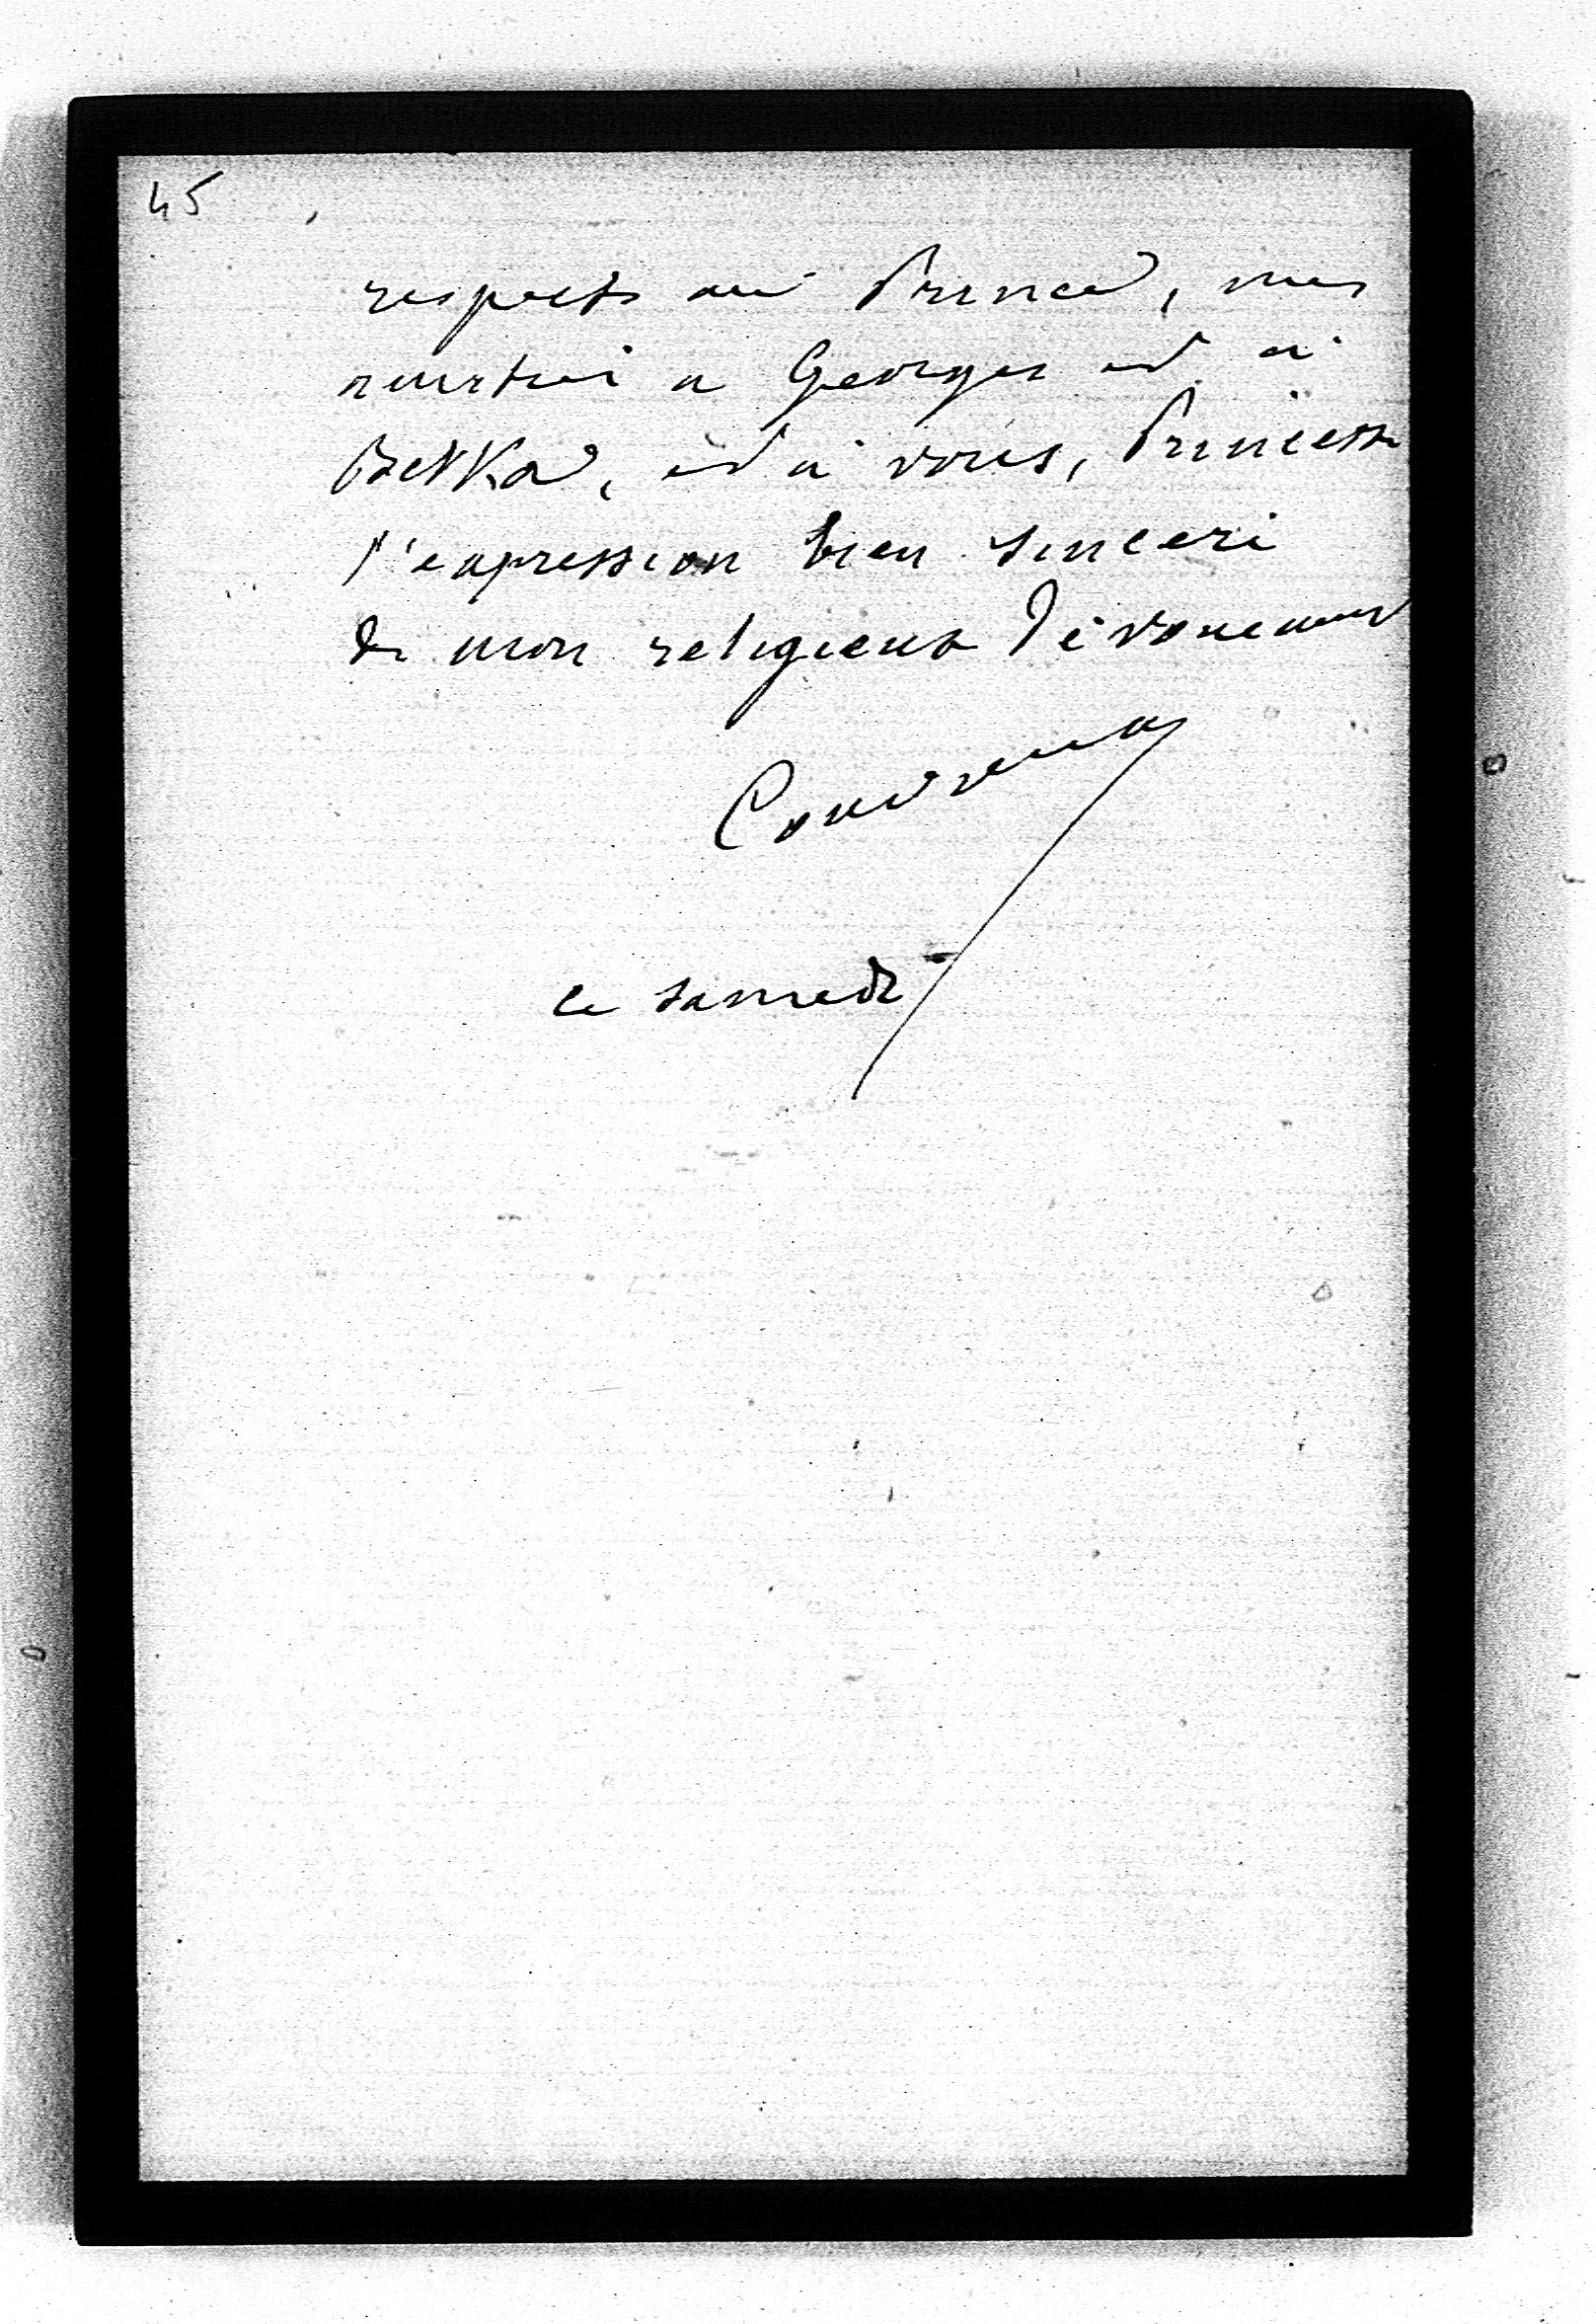 45
respects au Prince, mes
amitiés à Georges et à
Betka, et à vous, Princesse
l'expression bien sincère
de mon religieux dévouement
ce samedi